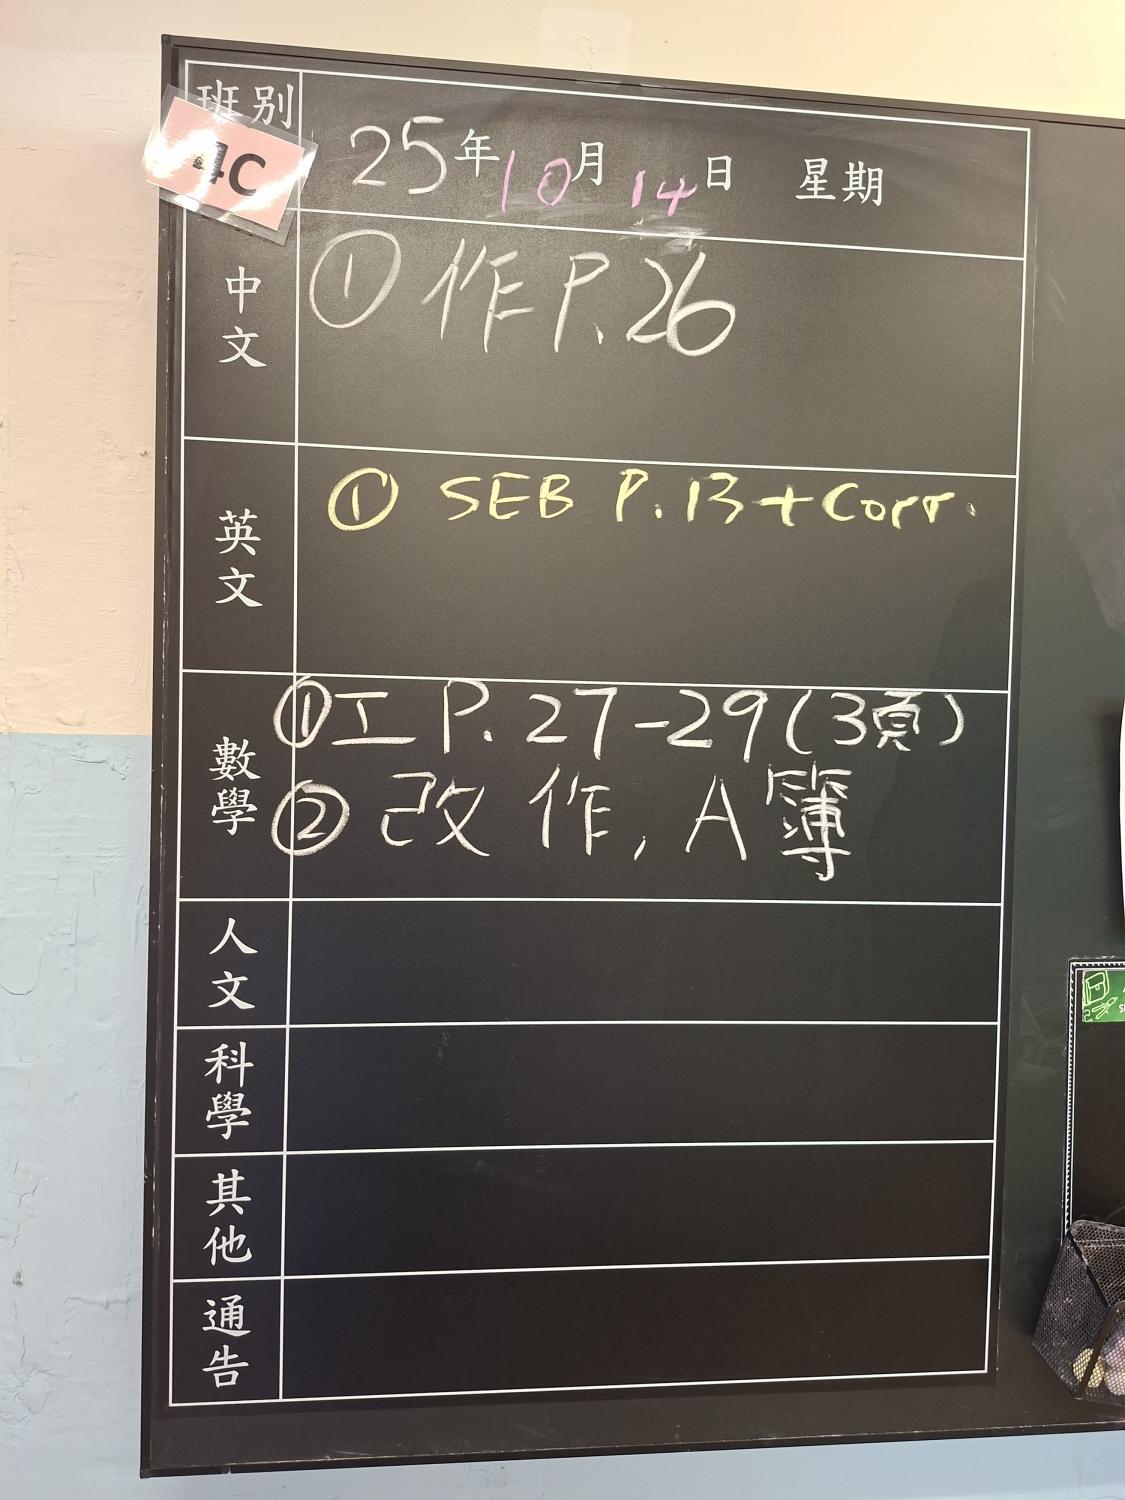 班別
4C
25年10月14日 星期
中文
① 作 P.26
英文
① SEB P.13 + Corr.
數學
① 工 P.27-29 (3頁)
② 改 作, A 簿
人文
科學
其他
通告